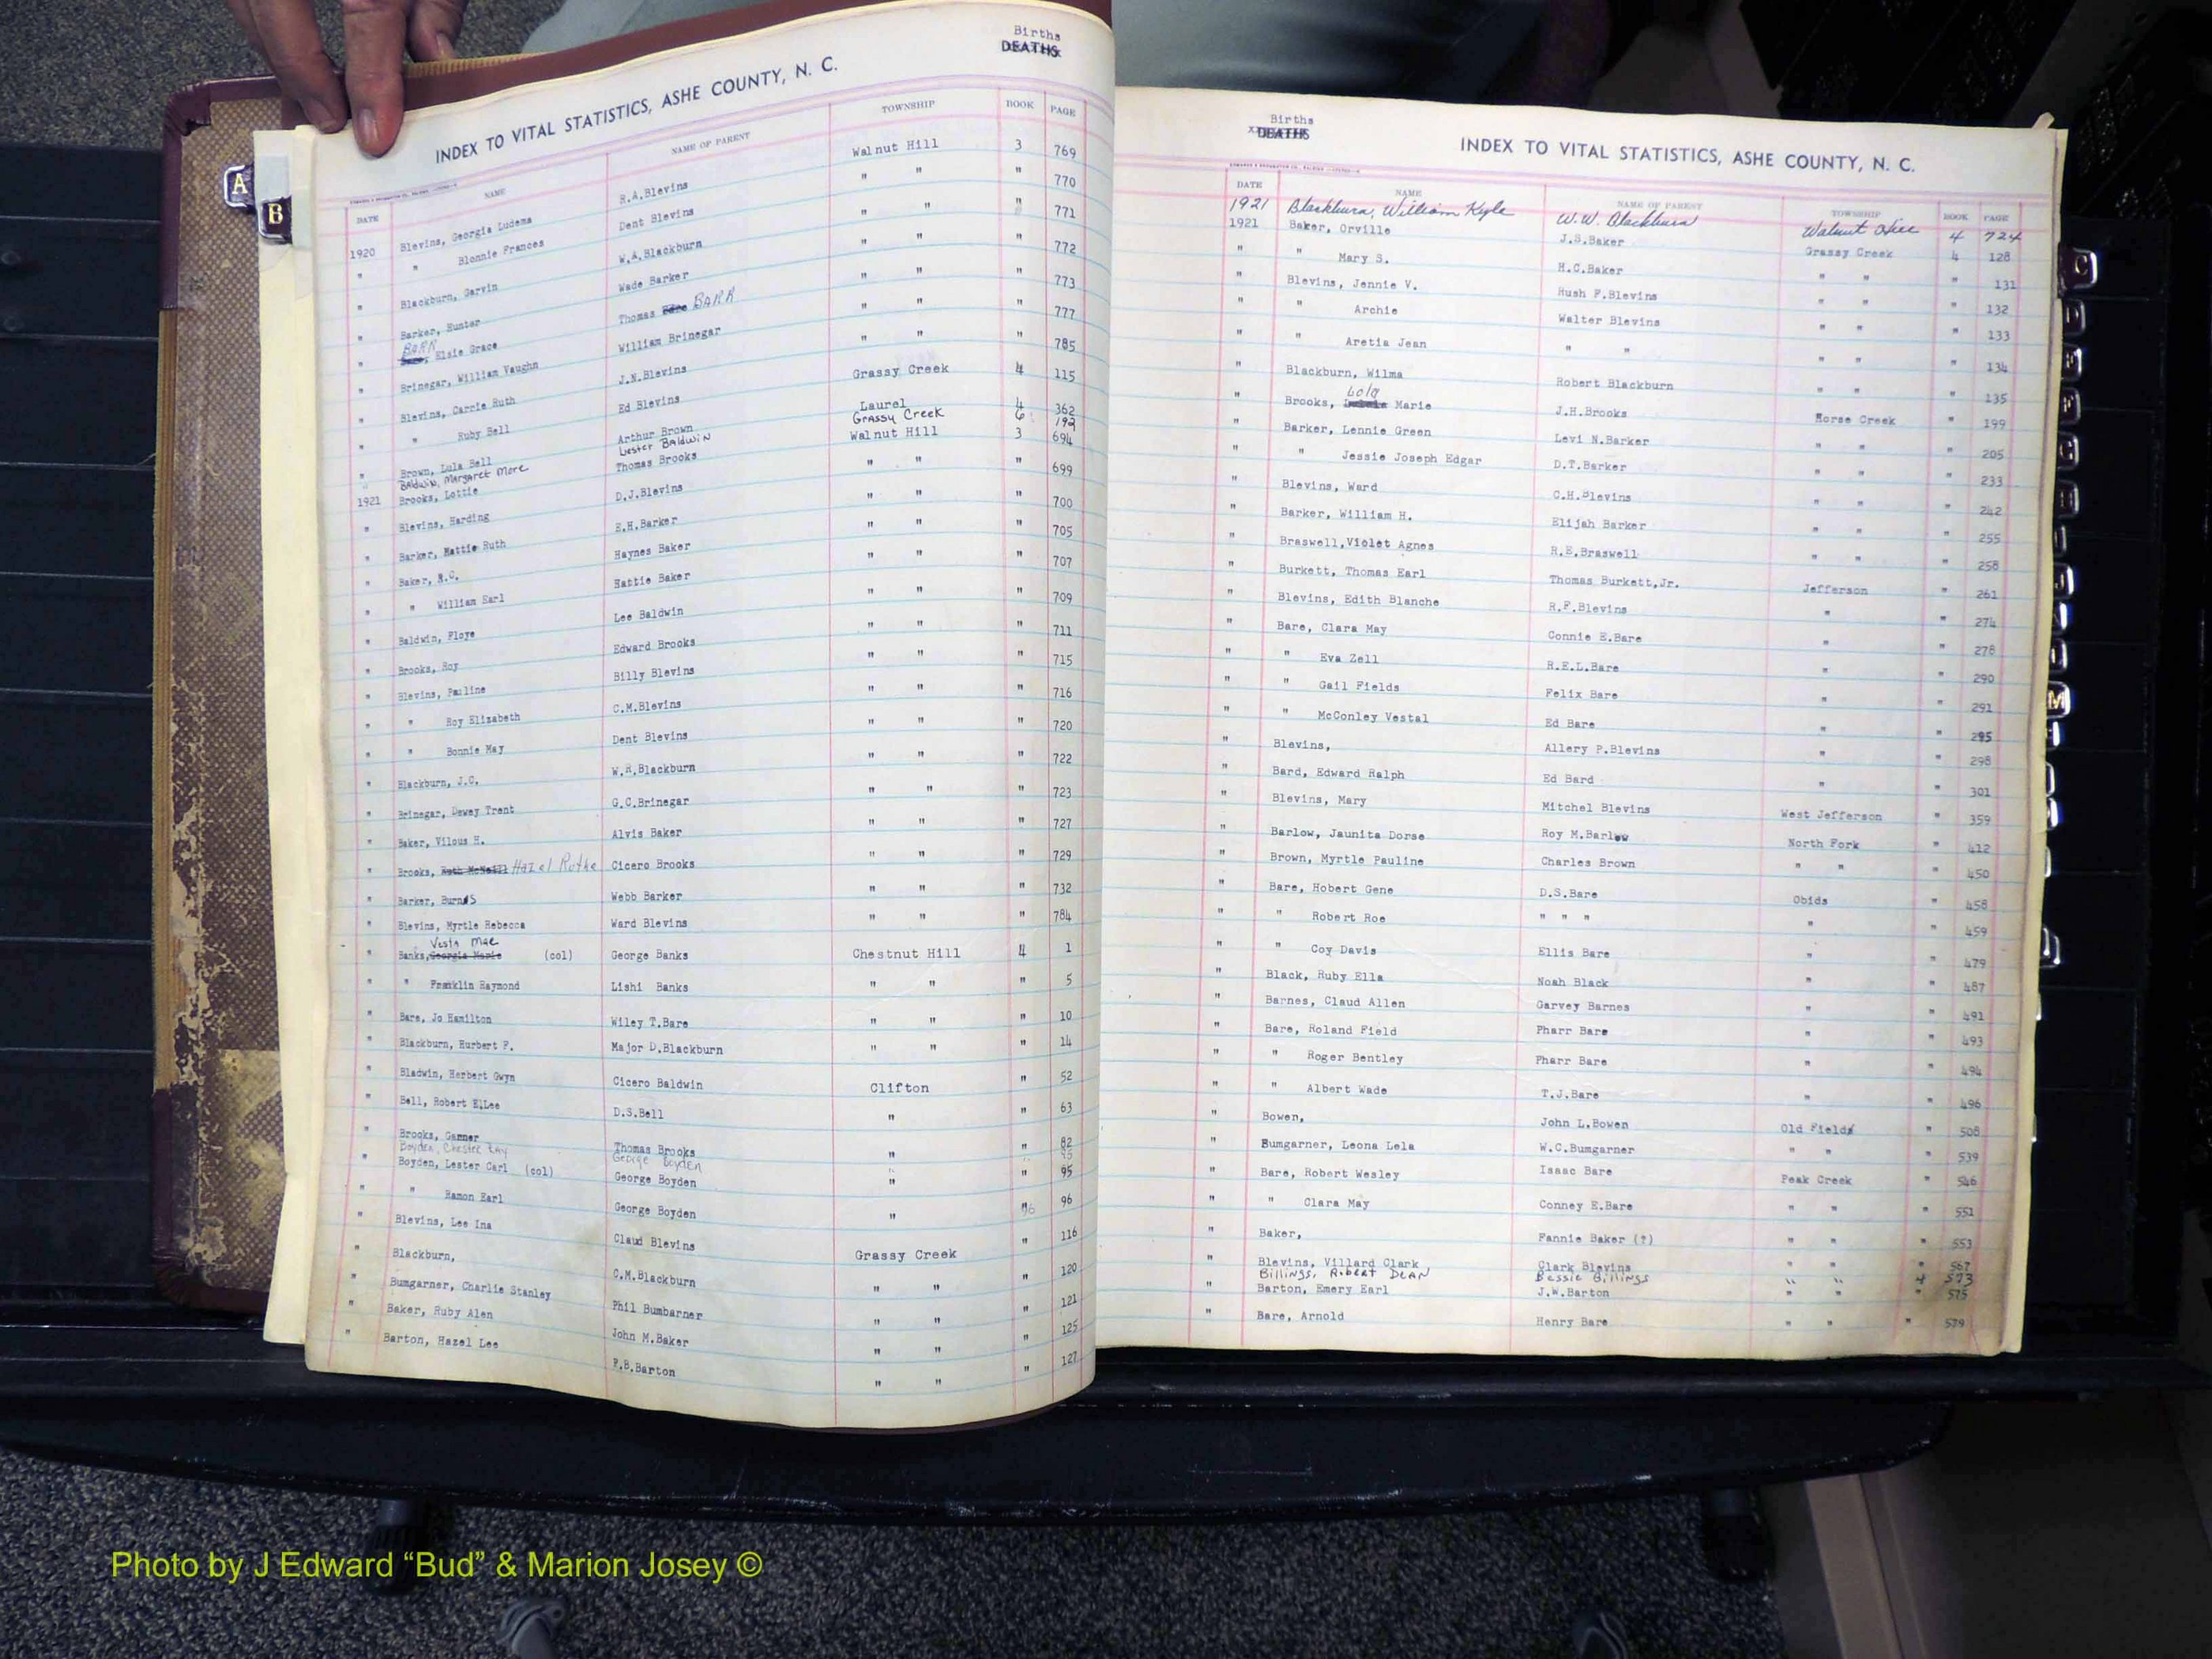 A
B
Births
DEATHS
INDEX TO VITAL STATISTICS, ASHE COUNTY, N. C.
DATE NAME NAME OF PARENT TOWNSHIP BOOK PAGE
1920 Blevins, Georgia Ludema R.A.Blevins Walnut Hill 3 769
" " Blonnie Frances Dent Blevins " " " 770
" Blackburn, Garvin W.A.Blackburn " " " 771
" Barker, Hunter Wade Barker " " " 772
" BARR, Elsie Grace Thomas BARR " " " 773
" Brinegar, William Vaughn William Brinegar " " " 777
" Blevins, Carrie Ruth J.N.Blevins " " " 785
" " Ruby Bell Ed Blevins Grassy Creek 4 115
" Brown, Lula Bell Arthur Brown Laurel 4 362
" Baldwin, Margaret More Lester Baldwin Grassy Creek 6 192
1921 Brooks, Lottie Thomas Brooks Walnut Hill 3 694
" Blevins, Harding D.J.Blevins " " " 699
" Barker, Mattie Ruth E.H.Barker " " " 700
" Baker, R.C. Haynes Baker " " " 705
" " William Earl Hattie Baker " " " 707
" Baldwin, Floye Lee Baldwin " " " 709
" Brooks, Roy Edward Brooks " " " 711
" Blevins, Pauline Billy Blevins " " " 715
" " Roy Elizabeth C.M.Blevins " " " 716
" " Bonnie May Dent Blevins " " " 720
" Blackburn, J.C. W.R.Blackburn " " " 722
" Brinegar, Dewey Trent G.C.Brinegar " " " 723
" Baker, Vilous H. Alvis Baker " " " 727
" Brooks, Ruth McNeill Hazel Ruthe Cicero Brooks " " " 729
" Barker, Burnes Webb Barker " " " 732
" Blevins, Myrtle Rebecca Ward Blevins " " " 784
Vesta Mae
" Banks, Georgia Marie (col) George Banks Chestnut Hill 4 1
" " Franklin Raymond Lishi Banks " " " 5
" Bare, Jo Hamilton Wiley T.Bare " " " 10
" Blackburn, Hurbert F. Major D.Blackburn " " " 14
" Bladwin, Herbert Gwyn Cicero Baldwin Clifton " 52
" Bell, Robert E.Lee D.S.Bell " " 63
" Brooks, Garner Thomas Brooks " " 82
Boyden, Chester Ray George Boyden " " 95
" Boyden, Lester Carl (col) George Boyden " " 95
" " Ramon Earl George Boyden " " 96
" Blevins, Lee Ina Claud Blevins Grassy Creek " 116
" Blackburn, C.M.Blackburn " " " 120
" Bumgarner, Charlie Stanley Phil Bumbarner " " " 121
" Baker, Ruby Alen John M.Baker " " " 125
" Barton, Hazel Lee F.B.Barton " " " 127
Births
DEATHS
INDEX TO VITAL STATISTICS, ASHE COUNTY, N. C.
DATE NAME NAME OF PARENT TOWNSHIP BOOK PAGE
1921 Blackburn, William Kyle W.W. Blackburn Walnut Hill 4 724
1921 Baker, Orville J.S.Baker Grassy Creek 4 128
" " Mary S. H.C.Baker " " " 131
" Blevins, Jennie V. Rush F.Blevins " " " 132
" " Archie Walter Blevins " " " 133
" " Aretia Jean " " " " " 134
" Blackburn, Wilma Robert Blackburn " " " 135
" Brooks, Lola Marie J.H.Brooks Horse Creek " 199
" Barker, Lennie Green Levi N.Barker " " " 205
" " Jessie Joseph Edgar D.T.Barker " " " 233
" Blevins, Ward C.H.Blevins " " " 242
" Barker, William H. Elijah Barker " " " 255
" Braswell,Violet Agnes R.E.Braswell " " " 258
" Burkett, Thomas Earl Thomas Burkett,Jr. Jefferson " 261
" Blevins, Edith Blanche R.F.Blevins " " 274
" Bare, Clara May Connie E.Bare " " 278
" " Eva Zell R.E.L.Bare " " 290
" " Gail Fields Felix Bare " " 291
" " McConley Vestal Ed Bare " " 295
" Blevins, Allery P.Blevins " " 298
" Bard, Edward Ralph Ed Bard " " 301
" Blevins, Mary Mitchel Blevins West Jefferson " 359
" Barlow, Jaunita Dorse Roy M.Barlow North Fork " 412
" Brown, Myrtle Pauline Charles Brown " " " 450
" Bare, Hobert Gene D.S.Bare Obids " 458
" " Robert Roe " " " " " 459
" " Coy Davis Ellis Bare " " 479
" Black, Ruby Ella Noah Black " " 487
" Barnes, Claud Allen Garvey Barnes " " 491
" Bare, Roland Field Pharr Bare " " 493
" " Roger Bentley Pharr Bare " " 494
" " Albert Wade T.J.Bare " " 496
" Bowen, John L.Bowen Old Fields " 508
" Bumgarner, Leona Lela W.C.Bumgarner " " " 539
" Bare, Robert Wesley Isaac Bare Peak Creek " 546
" " Clara May Conney E.Bare " " " 551
" Baker, Fannie Baker (?) " " " 553
" Blevins, Villard Clark Clark Blevins " " " 567
Billings, Robert DEAN Bessie Billings " " 4 573
" Barton, Emery Earl J.W.Barton " " " 575
" Bare, Arnold Henry Bare " " " 579
C
M
Photo by J Edward “Bud” & Marion Josey ©